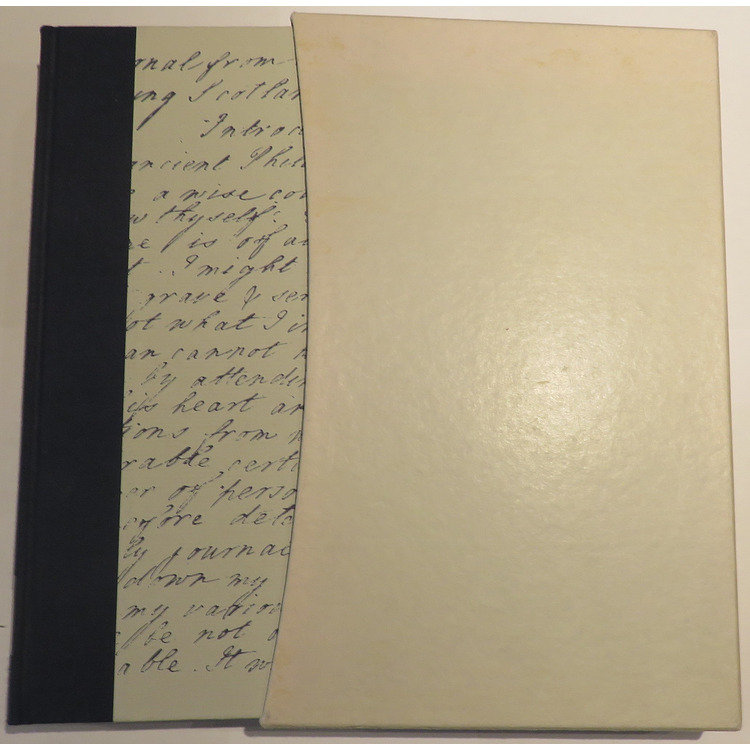 onal from
ing Scotlan
Introd
ancient Phil
a wise cou
w thyself.
re is of a
t. I might
grave & ser
ot what I in
an cannot
by attendin
his heart an
tions from
rable certi
er of perso
efore det
ly journal
down my
my variou
be not
able. It w